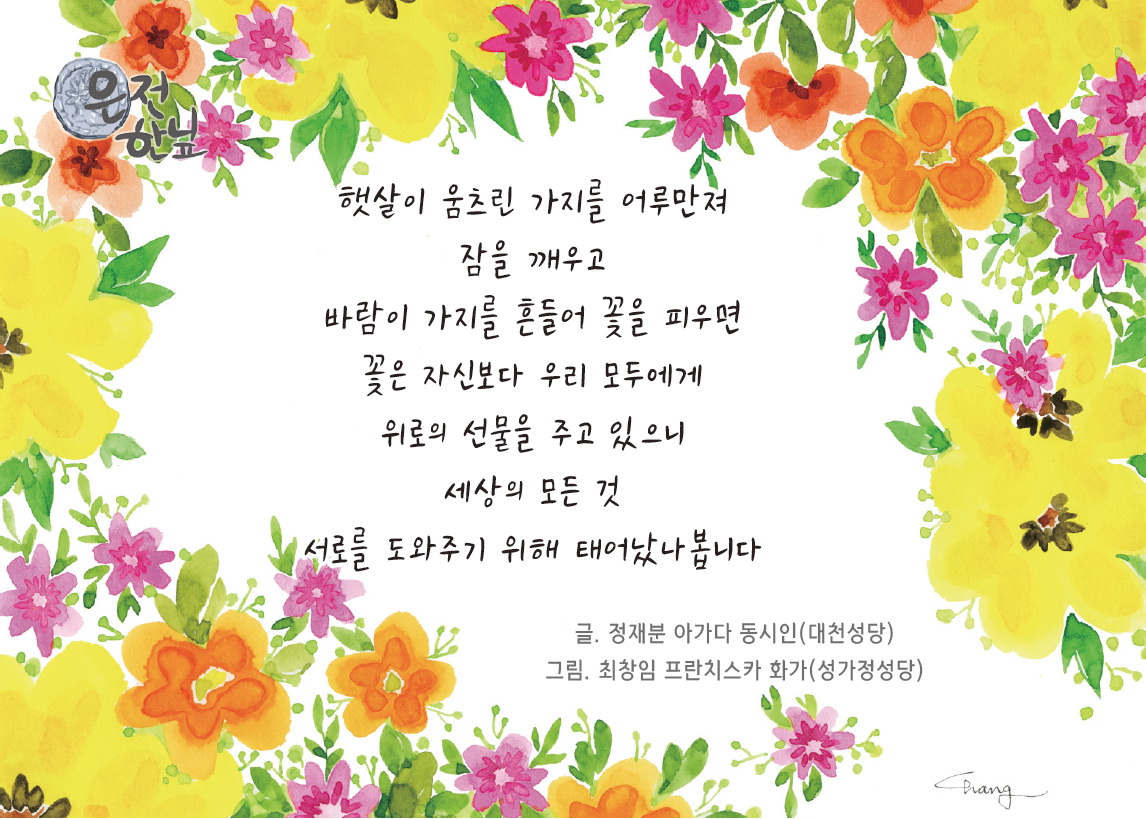 은전
한닢
햇살이 움츠린 가지를 어루만져
잠을 깨우고
바람이 가지를 흔들어 꽃을 피우면
꽃은 자신보다 우리 모두에게
위로의 선물을 주고 있으니
세상의 모든 것
서로를 도와주기 위해 태어났나봅니다
글. 정재분 아가다 동시인(대천성당)
그림. 최창임 프란치스카 화가(성가정성당)
Chang